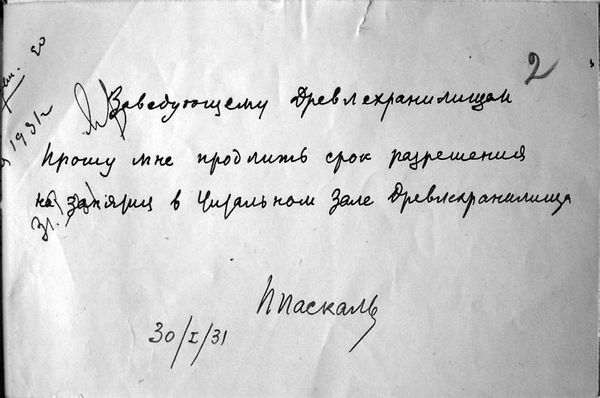 2
1931г
Заведующему Древлехранилищем
Прошу мне продлить срок разрешения
на занятия в читальном зале Древлехранилища
31.
ППаскаль
30/I/31